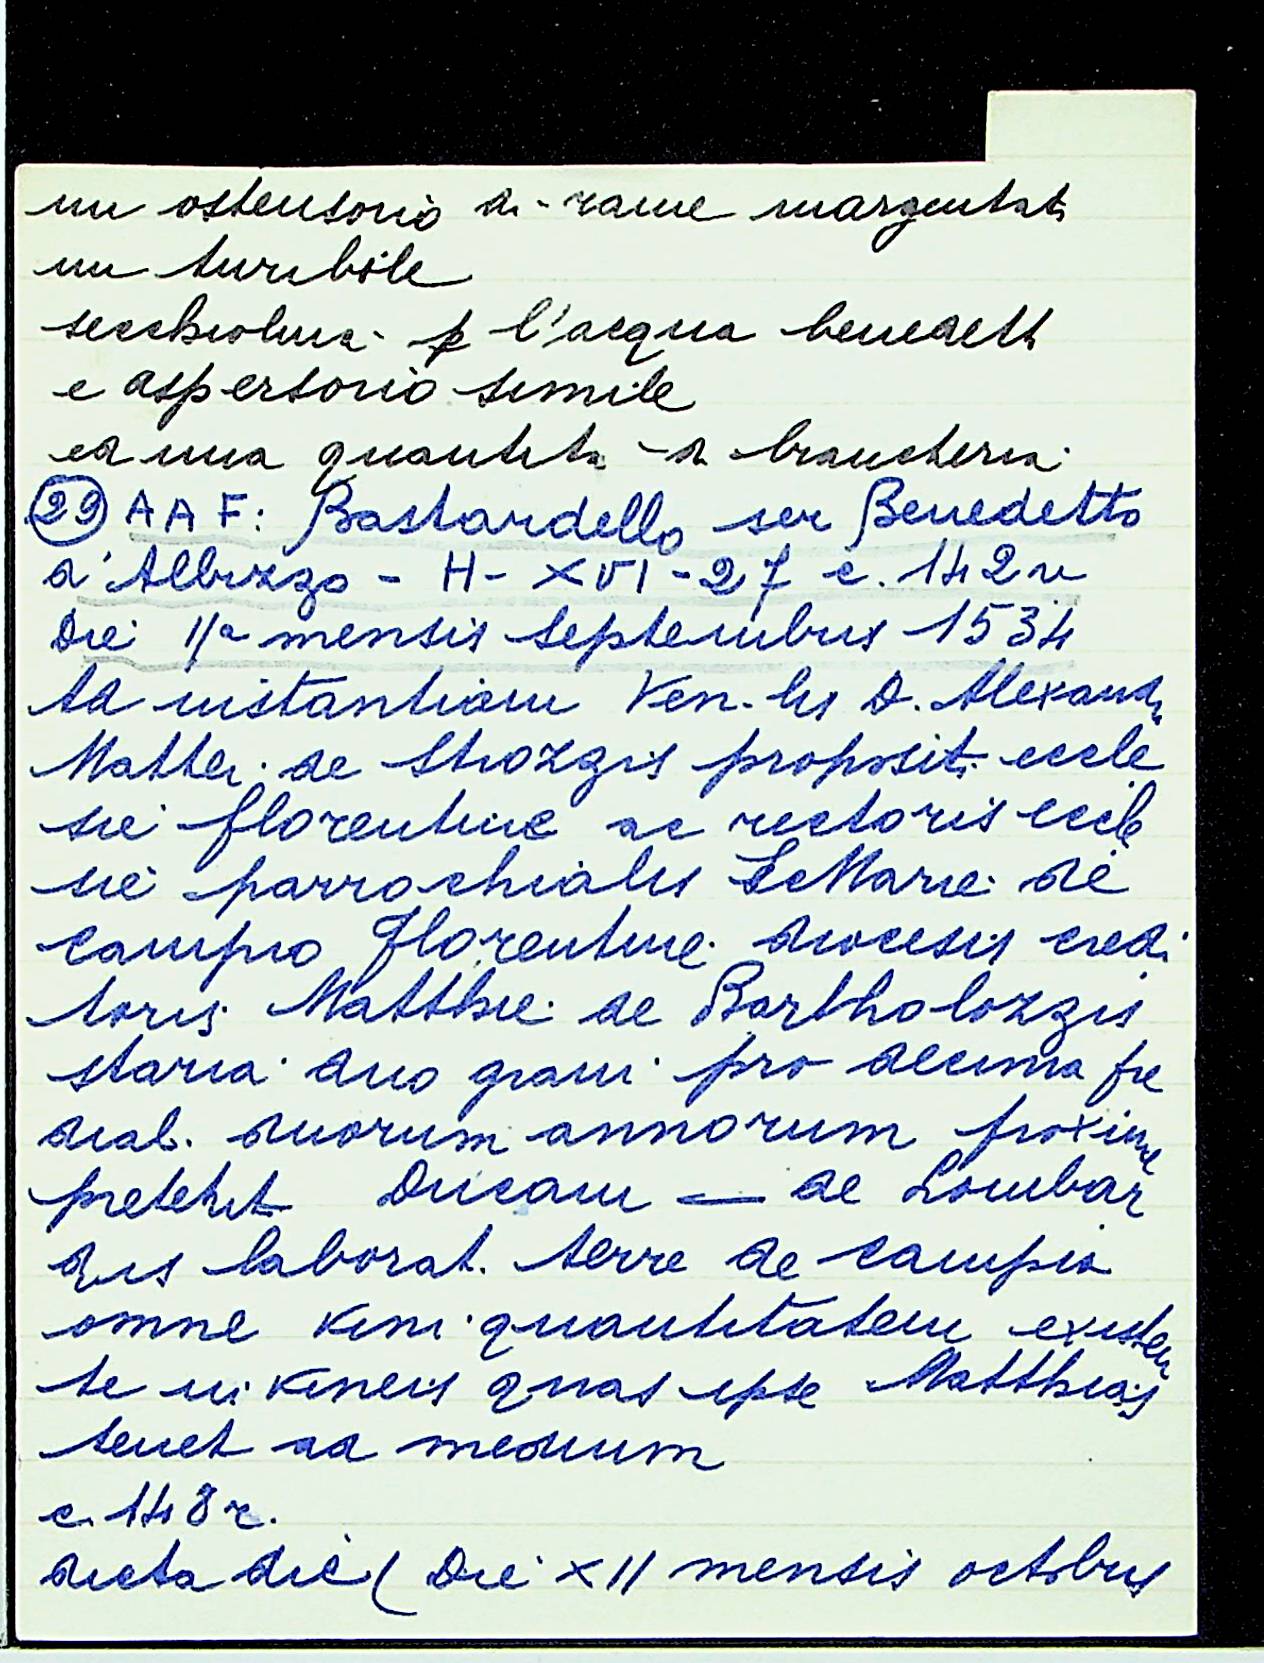 un ostensorio di rame inargentato
un turibile
secchiolina p l'acqua benedett
e aspersorio simile
ed una quantità di biancheria
29 AAF: Bastardello ser Benedetto
d'Albizzo - H - XVI - 27 c. 142 v
Die 11a mensis septembris 1534
Ad instantiam Ven. lis D. Alexandi
Mattei de Strozzis propositi eccle
sie florentine ac rectoris eccle
sie parrochialis S. Marie de
Campio Florentine diocesis credi
toris Matthie de Bartholozzis
staria duo grani pro decima pre
dial. duorum annorum proxime
preterit Ducam — de Lombar
dis laborat. terre de campio
omne vini quantitatem existen
te in vineis quas ipse Matthias
tenet ad medium
c. 148 r.
dicta die (Die XII mensis octobris